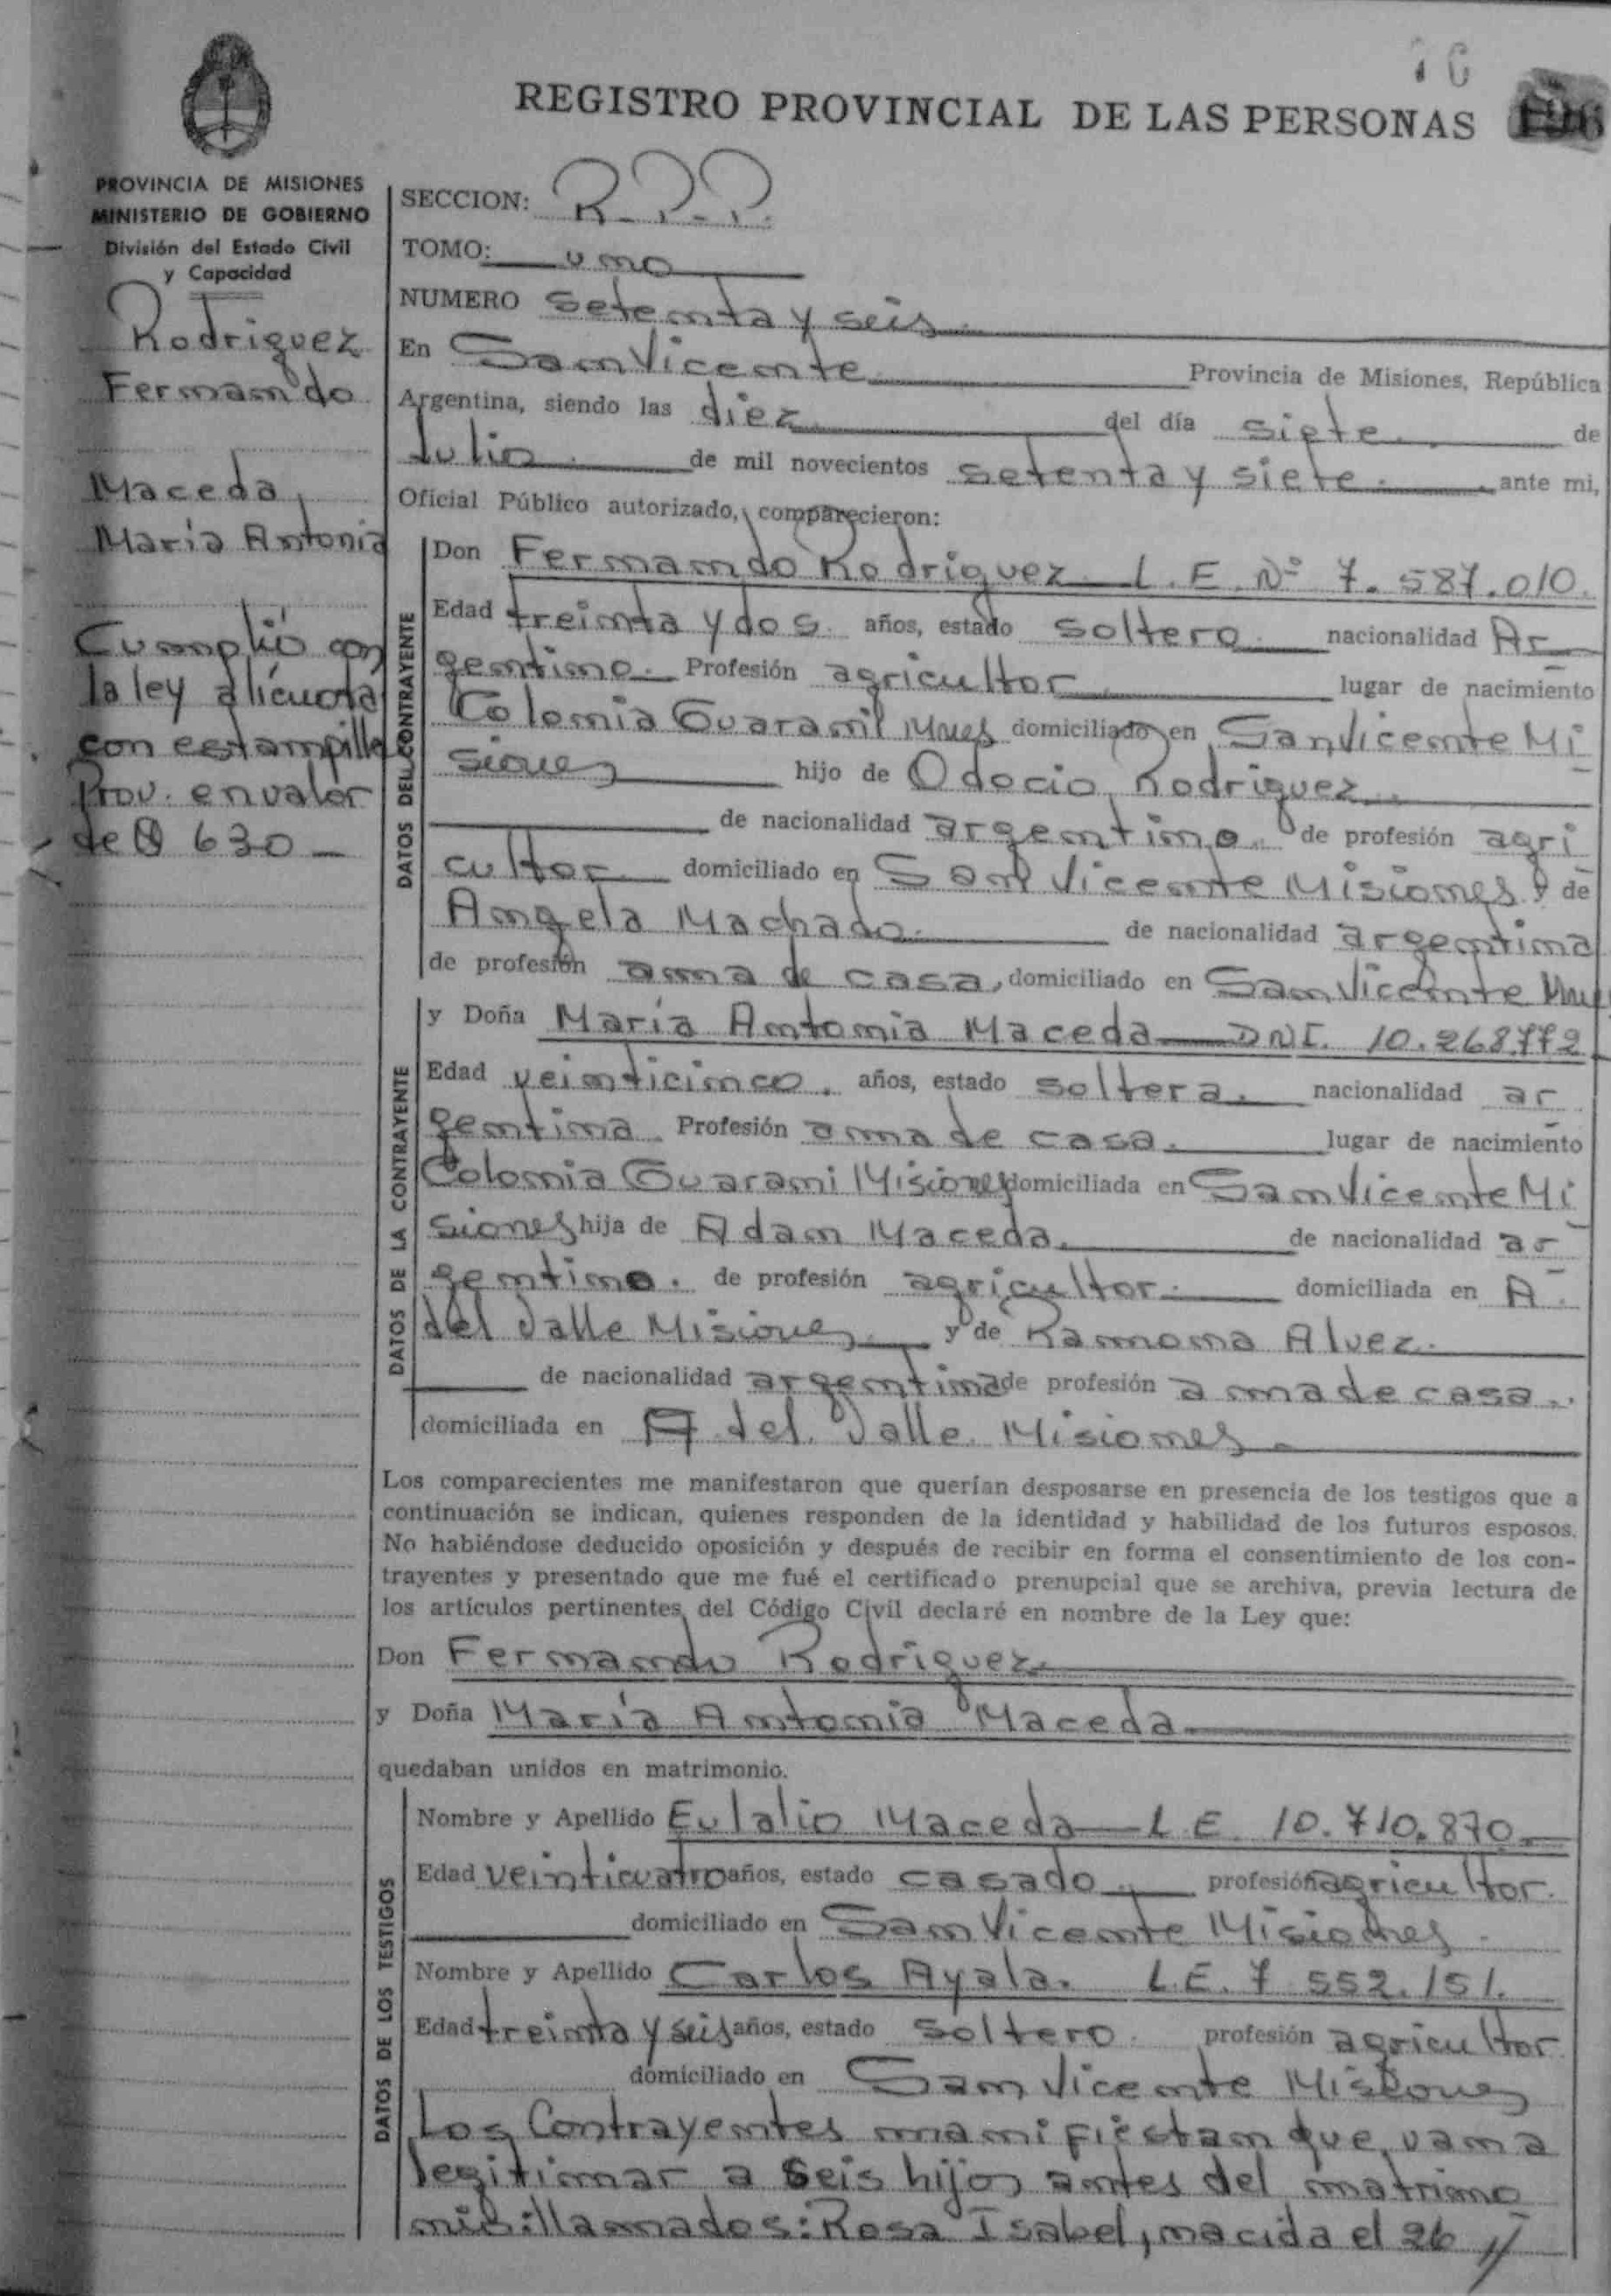 76
REGISTRO PROVINCIAL DE LAS PERSONAS
PROVINCIA DE MISIONES
MINISTERIO DE GOBIERNO
División del Estado Civil
y Capacidad
Rodriguez
Fernando
Maceda
María Antonia
Cumplió con
la ley alícuota
con estampilla
Prov. en valor
de $ 630 —
SECCION: R.P.P.
TOMO: uno
NUMERO setenta y seis
En San Vicente Provincia de Misiones, República
Argentina, siendo las diez del día siete de
Julio de mil novecientos setenta y siete ante mi,
Oficial Público autorizado, comparecieron:
DATOS DEL CONTRAYENTE
Don Fernando Rodriguez L.E. Nº 7.587.010.
Edad treinta y dos años, estado soltero nacionalidad Ar
gentino. Profesión agricultor lugar de nacimiento
Colonia Guaraní Mnes domiciliado en San Vicente Mi
siones hijo de Odocio Rodriguez
de nacionalidad argentino de profesión agri
cultor domiciliado en San Vicente Misiones y de
Angela Machado de nacionalidad argentina
de profesión ama de casa, domiciliado en San Vicente Mnes
DATOS DE LA CONTRAYENTE
y Doña María Antonia Maceda — DNI. 10.268.772
Edad veinticinco. años, estado soltera. nacionalidad ar
gentina. Profesión ama de casa. lugar de nacimiento
Colonia Guarani Misiones domiciliada en San Vicente Mi
siones hija de Adan Maceda de nacionalidad ar
gentino. de profesión agricultor. domiciliada en A.
del Valle Misiones y de Ramona Alvez.
de nacionalidad argentina de profesión ama de casa.
domiciliada en A. del Valle Misiones
Los comparecientes me manifestaron que querían desposarse en presencia de los testigos que a
continuación se indican, quienes responden de la identidad y habilidad de los futuros esposos.
No habiéndose deducido oposición y después de recibir en forma el consentimiento de los con-
trayentes y presentado que me fué el certificado prenupcial que se archiva, previa lectura de
los artículos pertinentes del Código Civil declaré en nombre de la Ley que:
Don Fernando Rodriguez
y Doña María Antonia Maceda
quedaban unidos en matrimonio.
DATOS DE LOS TESTIGOS
Nombre y Apellido Eulalio Maceda — L.E. 10.710.870
Edad veinticuatro años, estado casado profesión agricultor.
domiciliado en San Vicente Misiones
Nombre y Apellido Carlos Ayala. L.E. 7 552.151.
Edad treinta y seis años, estado soltero. profesión agricultor
domiciliado en San Vicente Misiones
Los Contrayentes manifiestan que van a
legitimar a seis hijos antes del matrimo
nio: llamados: Rosa Isabel, nacida el 26 //